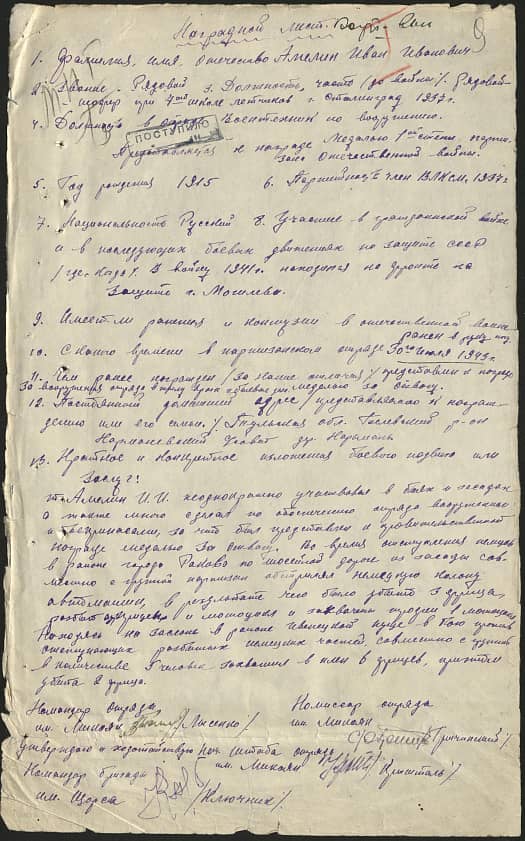 Наградной лист.
9
1. Фамилия, имя, отчество Амелин Иван Иванович
2. Звание. Рядовой 3. Должность, часть /до войны/. Рядовой-
шофер при школе летчиков г. Сталинград 1937г.
4. Должность в Воентехник по вооружению.
ПОСТУПИЛО
Представляется к награде Медалью 1ой степ. парти-
зана Отечественной войны.
5. Год рождения 1915 6. Партийность член ВЛКСМ, 1937г
7. Национальность Русский 8. Участие в гражданской войне
и в последующих боевых движениях по защите СССР
/где, когда/. В войну 1941г. находился на фронте на
защите г. Могилева.
9. Имеет ли ранения и контузии в отечественной войне
ранен в руку
10. С какого времени в партизанском отряде 30го июля 1943г.
11. Чем ранее награжден /за какие отличия/ представлен к награде
За вооружение отряда медалью за отвагу.
12. Постоянный домашний адрес /представляемого к награж-
дению или его семьи./ Тульская обл. р-он
13. Краткое и конкретное изложения боевого подвига или
заслуг:
т. Амелин И.И. неоднократно участвовал в боях и засадах
а также много сделал по обеспечению отряда вооружением
и боеприпасами, за что был представлен к правительственной
награде медалью За отвагу. Во время отступления немцев
в районе города Раково по шоссейной дороге из засады сов-
местно с группой партизан обстрелял немецкую колону
автомашин, в результате чего было убито 3 фрица,
разбит и мотоцикл и захвачено 1 мотоцикл
Находясь на заслоне в районе Ивенецкой пущи в бою против
отступающих разбитых немецких частей, совместно с группой
в количестве 5 человек захватил в плен 6 фрицев, причем
убита 2 фрица.
Командир отряда Комиссар отряда
им. Микоян /Лысенко/ им. Микоян
/Гричинский/
Утверждаю и ходатайствую Нач. штаба отряда
Командир бригады им. Микоян /Кришталь/
им. Щорса /Ключник/.